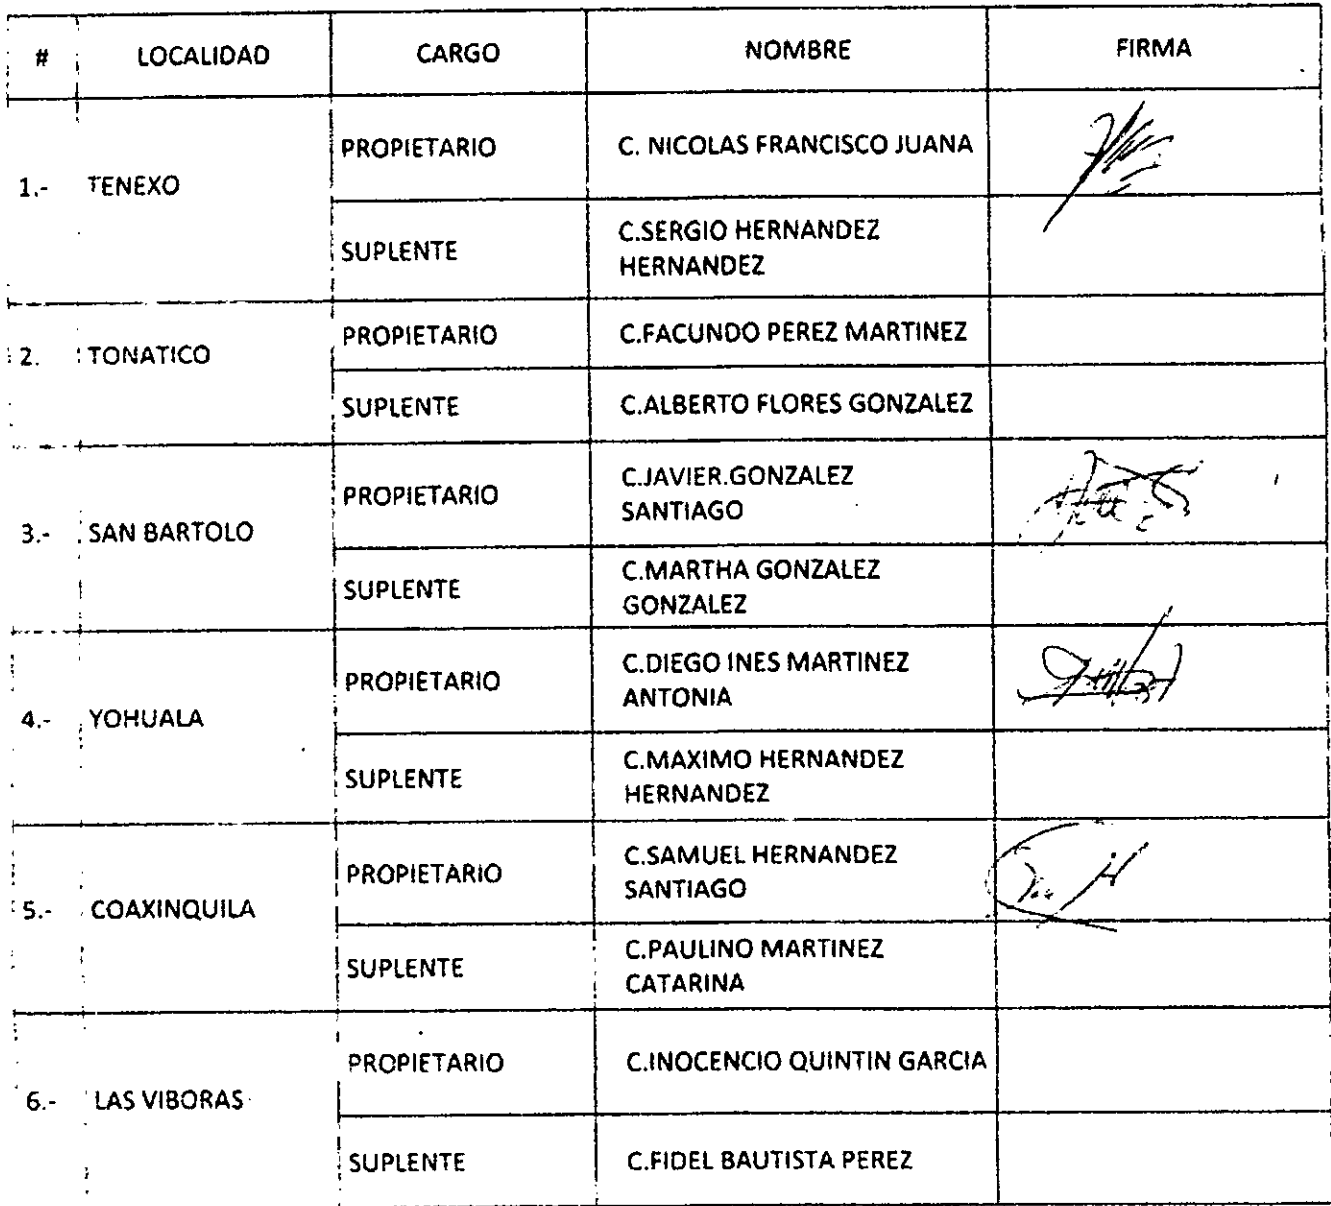 # LOCALIDAD CARGO NOMBRE FIRMA
1.- TENEXO
PROPIETARIO C. NICOLAS FRANCISCO JUANA
SUPLENTE C.SERGIO HERNANDEZ
HERNANDEZ
2. TONATICO
PROPIETARIO C.FACUNDO PEREZ MARTINEZ
SUPLENTE C.ALBERTO FLORES GONZALEZ
3.- SAN BARTOLO
PROPIETARIO C.JAVIER.GONZALEZ
SANTIAGO
SUPLENTE C.MARTHA GONZALEZ
GONZALEZ
4.- YOHUALA
PROPIETARIO C.DIEGO INES MARTINEZ
ANTONIA
SUPLENTE C.MAXIMO HERNANDEZ
HERNANDEZ
5.- COAXINQUILA
PROPIETARIO C.SAMUEL HERNANDEZ
SANTIAGO
SUPLENTE C.PAULINO MARTINEZ
CATARINA
6.- LAS VIBORAS
PROPIETARIO C.INOCENCIO QUINTIN GARCIA
SUPLENTE C.FIDEL BAUTISTA PEREZ